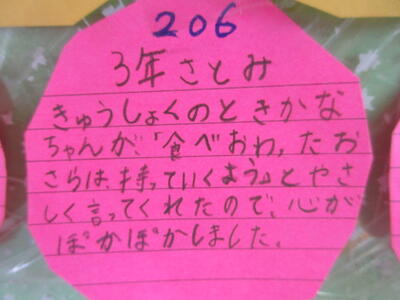 206
3年さとみ
きゅうしょくのときかな
ちゃんが、「食べおわったお
さらは、持っていくよう」とやさ
しく言ってくれたので、心が
ぽかぽかしました。